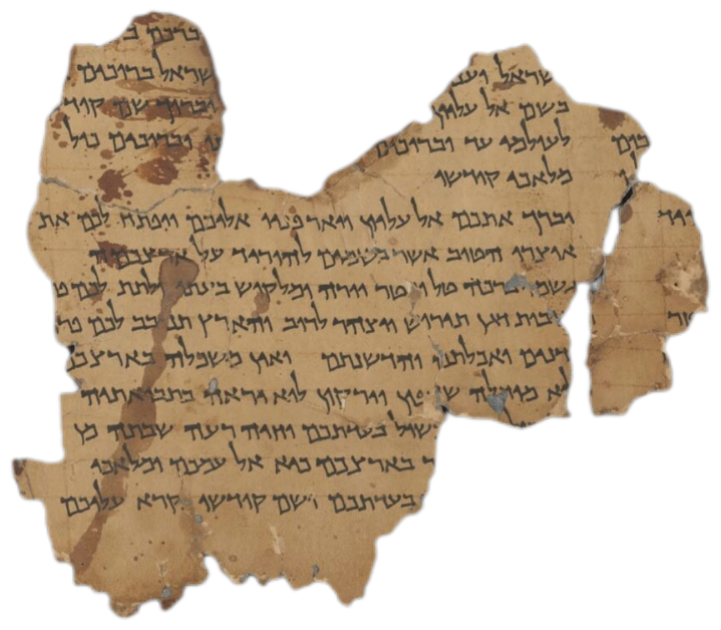 ברכם ב
שראל וענ שראל ברוכים
בשם אל עליון וברוך שם קוד
לעולמי עד וברוכים ו וברוכים כול
מלאכי קודשו
יברך אתכם אל עליון ויאר פניו אליכם ויפתח לכם את
אוצרו הטוב אשר בשמים להוריד על ארצכמה
גשמי ברכה טל ומטר יורה ומלקוש בעתו ולתת לכם
תנובות דגן תירוש ויצהר לרוב והארץ תנובב לכם פר
דנים ואכלתם והדשנתם ואין משכלה בארצכ
לוא מוחלה שדפון וירקון לוא יראה בתבואתיה
שול בעדתכם וחיה רעה שבתה מן
ר בארצכם כיא אל עמכם ומלאכי
בעדתכם ושם קודשו נקרא עליכם